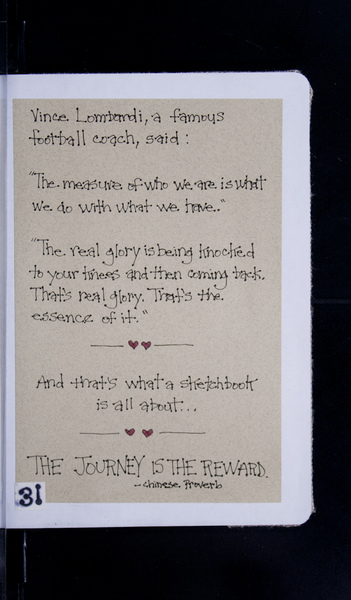 Vince Lombardi, a famous
football coach, said:
"The measure of who we are is what
we do with what we have."
"The real glory is being knocked
to your knees and then coming back.
That's real glory. That's the
essence of it."
And that's what a sketchbook
is all about...
THE JOURNEY IS THE REWARD.
- Chinese Proverb
31